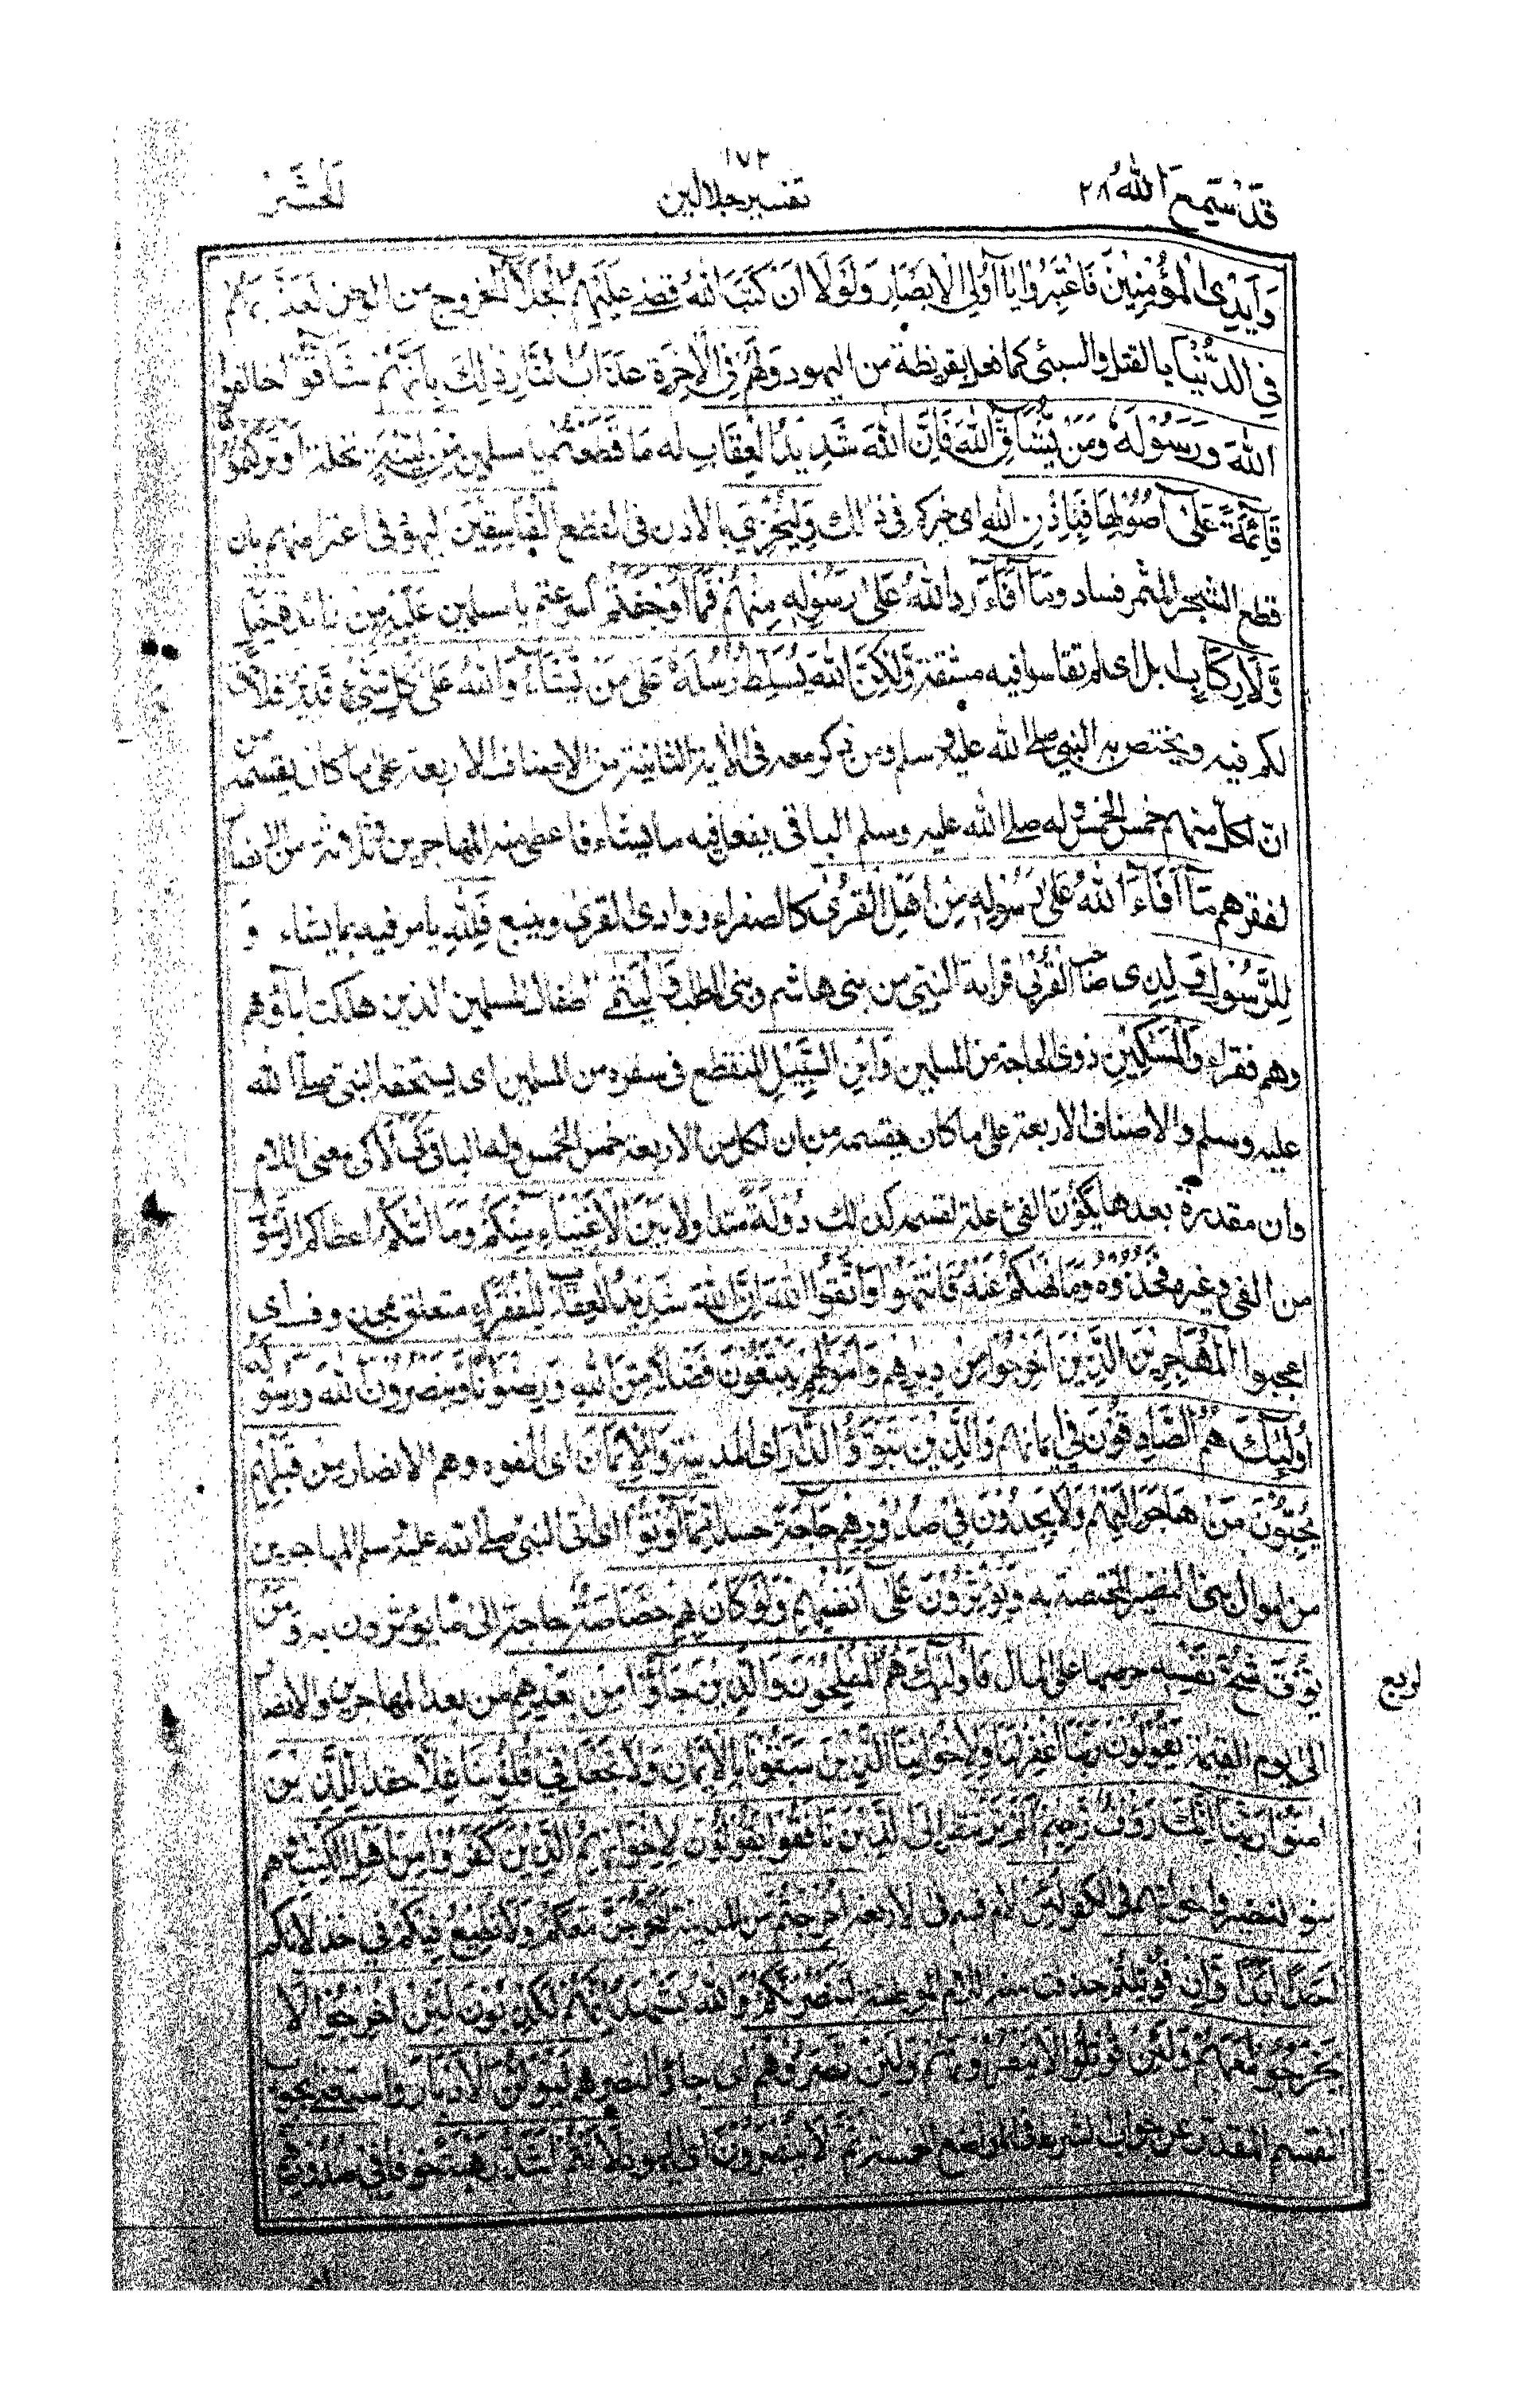 ١٧٢
قَدْ سَمِعَ اللهُ ٢٨
تفسير جلالين
الحَشْر
وَاَيْدِى الْمُؤْمِنِيْنَ فَاعْتَبِرُوْا يٰاُولِى الْاَبْصَارِ وَلَوْلَا اَنْ كَتَبَ اللهُ قضى عَلَيْهِمُ الْجَلَاءَ الخروج من الوطن لَعَذَّبَهُمْ
فِى الدُّنْيَا بالقتل والسبى كما فعل بقريظة من اليهود وَلَهُمْ فِى الْاٰخِرَةِ عَذَابُ النَّارِ ذٰلِكَ بِاَنَّهُمْ شَاقُّوْا خالفوا
اللهَ وَرَسُوْلَهٗ وَمَنْ يُّشَاقِّ اللهَ فَاِنَّ اللهَ شَدِيْدُ الْعِقَابِ له مَا قَطَعْتُمْ يا مسلمين مِّنْ لِّيْنَةٍ نخلة اَوْ تَرَكْتُمُوْهَا
قَائِمَةً عَلٰى اُصُوْلِهَا فَبِاِذْنِ اللهِ اى خيركم فى ذلك وَلِيُخْزِىَ بالاذن فى القطع الْفٰسِقِيْنَ اليهود فى اعتراضهم بان
قطع الشجر المثمر فساد وَمَا اَفَاءَ رد اللهُ عَلٰى رَسُوْلِهٖ مِنْهُمْ فَمَا اَوْجَفْتُمْ اسرعتم يا مسلمين عَلَيْهِ مِنْ زائدة خَيْلٍ
وَّلَا رِكَابٍ ابل اى لم تقاسوا فيه مشقة وَّلٰكِنَّ اللهَ يُسَلِّطُ رُسُلَهٗ عَلٰى مَنْ يَّشَاءُ وَاللهُ عَلٰى كُلِّ شَىْءٍ قَدِيْرٌ فلا حق
لكم فيه ويختص به النبى صلى الله عليه وسلم ومن ذكر معه فى الاية الثانية من الاصناف الاربعة على ما كان يقسمه من
ان لكل منهم خمس الخمس وله صلى الله عليه وسلم الباقى يفعل فيه ما يشاء فاعطى منه المهاجرين وثلاثة من الانصار
لفقرهم مَا اَفَاءَ اللهُ عَلٰى رَسُوْلِهٖ مِنْ اَهْلِ الْقُرٰى كالصفراء ووادى القرى وينبع فَلِلّٰهِ يامر فيه بما يشاء وَ
لِلرَّسُوْلِ وَلِذِى صاحب الْقُرْبٰى قرابة النبى من بنى هاشم وبنى المطلب وَالْيَتٰمٰى اطفال المسلمين الذين هلكت آباؤهم
وهم فقراء وَالْمَسٰكِيْنِ ذوى الحاجة من المسلمين وَابْنِ السَّبِيْلِ المنقطع فى سفره من المسلمين اى يستحقه النبى صلى الله
عليه وسلم والاصناف الاربعة على ما كان يقسمه من ان لكل من الاربعة خمس الخمس وله الباقى كَىْ لَا كى بمعنى اللام
وان مقدرة بعدها يَكُوْنَ الفئ علة لقسمه كذلك دُوْلَةً متداولا بَيْنَ الْاَغْنِيَاءِ مِنْكُمْ وَمَا اٰتٰكُمُ اعطاكم الرَّسُوْلُ
من الفئ وغيره فَخُذُوْهُ وَمَا نَهٰكُمْ عَنْهُ فَانْتَهُوْا وَاتَّقُوا اللهَ اِنَّ اللهَ شَدِيْدُ الْعِقَابِ لِلْفُقَرَاءِ متعلق بمحذوف اى
اعجبوا الْمُهٰجِرِيْنَ الَّذِيْنَ اُخْرِجُوْا مِنْ دِيَارِهِمْ وَاَمْوَالِهِمْ يَبْتَغُوْنَ فَضْلًا مِّنَ اللهِ وَرِضْوَانًا وَّيَنْصُرُوْنَ اللهَ وَرَسُوْلَهٗ
اُولٰئِكَ هُمُ الصّٰدِقُوْنَ فى ايمانهم وَالَّذِيْنَ تَبَوَّؤُ الدَّارَ اى المدينة وَالْاِيْمَانَ اى الفوه وهم الانصار مِنْ قَبْلِهِمْ
يُحِبُّوْنَ مَنْ هَاجَرَ اِلَيْهِمْ وَلَا يَجِدُوْنَ فِىْ صُدُوْرِهِمْ حَاجَةً حسدا مِّمَّا اُوْتُوْا اى اتى النبى صلى الله عليه وسلم المهاجرين
من اموال بنى النضير المختصة به وَيُؤْثِرُوْنَ عَلٰى اَنْفُسِهِمْ وَلَوْ كَانَ بِهِمْ خَصَاصَةٌ حاجة الى ما يؤثرون به وَمَنْ
يُّوْقَ شُحَّ نَفْسِهٖ حرصها على المال فَاُولٰئِكَ هُمُ الْمُفْلِحُوْنَ وَالَّذِيْنَ جَاءُوْا مِنْ بَعْدِهِمْ من بعد المهاجرين والانصار
الى يوم القيمة يَقُوْلُوْنَ رَبَّنَا اغْفِرْ لَنَا وَلِاِخْوَانِنَا الَّذِيْنَ سَبَقُوْنَا بِالْاِيْمَانِ وَلَا تَجْعَلْ فِىْ قُلُوْبِنَا غِلًّا حقدا لِّلَّذِيْنَ
اٰمَنُوْا رَبَّنَا اِنَّكَ رَءُوْفٌ رَّحِيْمٌ اَلَمْ تَرَ تنظر اِلَى الَّذِيْنَ نَافَقُوْا يَقُوْلُوْنَ لِاِخْوَانِهِمُ الَّذِيْنَ كَفَرُوْا مِنْ اَهْلِ الْكِتٰبِ وهم
بنو النضير واخوانهم فى الكفر لَئِنْ لام قسم فى الاربعة اُخْرِجْتُمْ من المدينة لَنَخْرُجَنَّ مَعَكُمْ وَلَا نُطِيْعُ فِيْكُمْ فى خذلانكم
اَحَدًا اَبَدًا وَّاِنْ قُوْتِلْتُمْ حذفت منه اللام الموطئة لَنَنْصُرَنَّكُمْ وَاللهُ يَشْهَدُ اِنَّهُمْ لَكٰذِبُوْنَ لَئِنْ اُخْرِجُوْا لَا
يَخْرُجُوْنَ مَعَهُمْ وَلَئِنْ قُوْتِلُوْا لَا يَنْصُرُوْنَهُمْ وَلَئِنْ نَّصَرُوْهُمْ اى جاؤا لنصرهم لَيُوَلُّنَّ الْاَدْبَارَ واستغنى بجواب
القسم المقدر عن جواب الشرط فى المواضع الخمسة ثُمَّ لَا يُنْصَرُوْنَ اى اليهود لَاَنْتُمْ اَشَدُّ رَهْبَةً خوفا فِىْ صُدُوْرِهِمْ